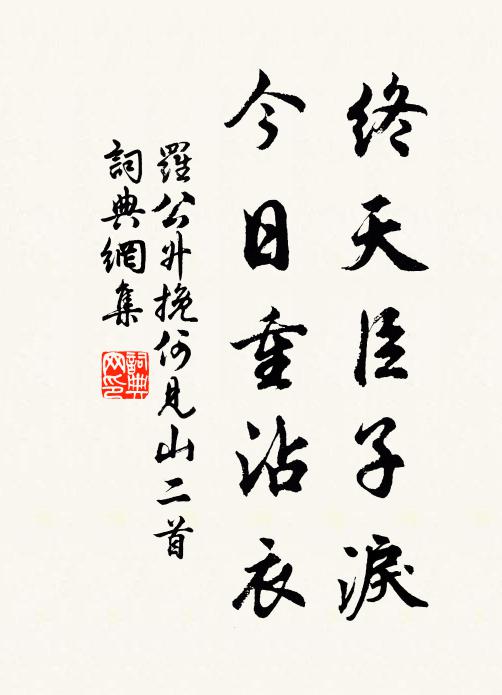 終天臣子淚
今日重沾衣
羅公升挽何見山二首
詞典網集
詞典網印